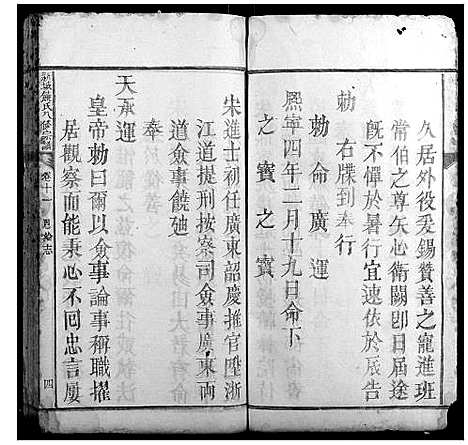 久居外役爰錫贊善之寵進班
常伯之尊矢心衛闕卽日屆途
旣不憚於暑行宜速依於辰告
右牒到奉行
勅
勅命廣運
熙寧四年二月十九日命下
之寶之寶
宋進士初任廣東韶慶推官陞浙
江道提刑按察司僉事廣東兩
道僉事饒廸
奉
天承運
皇帝勅曰爾以僉事論事稱職擢
居觀察而能秉心不回忠言屢
卷十一
四